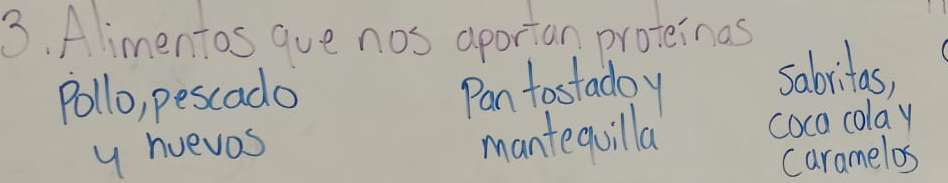 3. Alimentos que nos aportan proteínas
Pollo, pescado
y huevos
Pan tostado y
mantequilla
Sabritas,
coca cola y
caramelos